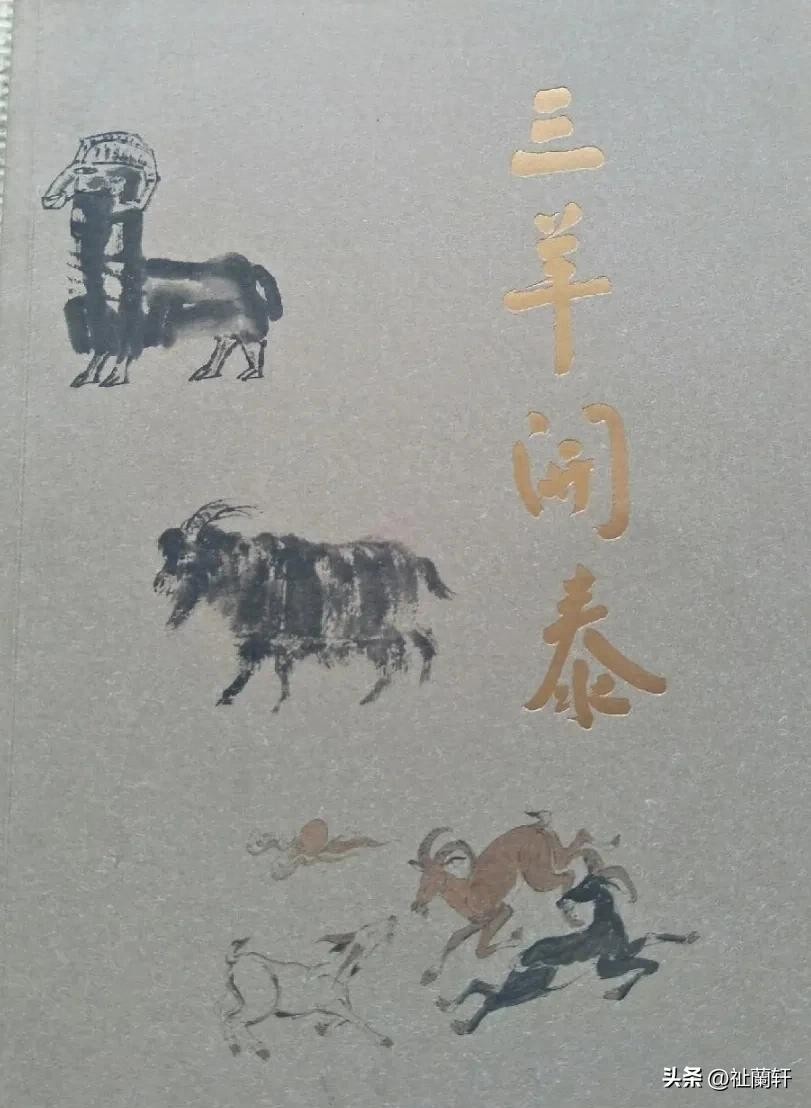 三羊開泰
头条 @祉蘭轩